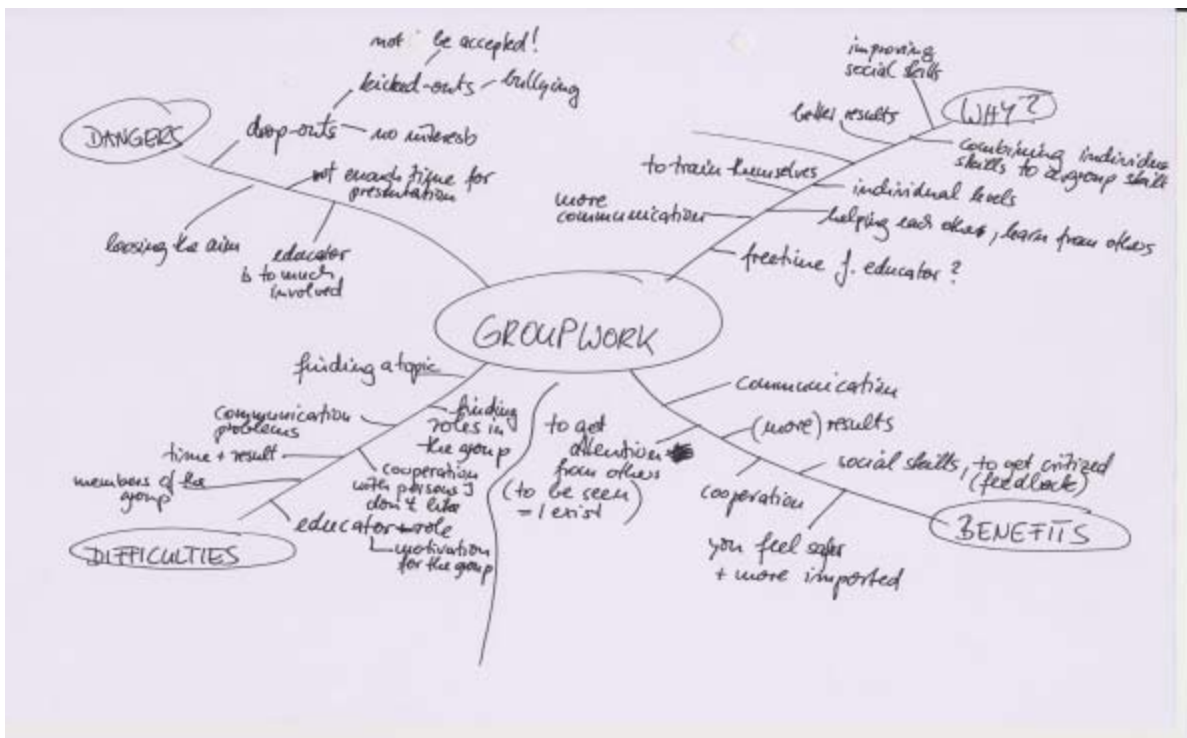 not be accepted!
kicked-outs
bullying
DANGERS
drop-outs
no interest
not enough time for
presentation
loosing the aim
educator
is to much
involved
improving
social skills
WHY?
better results
combining individual
skills to a group skill
to train themselves
individual levels
more
communication
helping each other, learn from others
freetime f. educator?
GROUPWORK
finding a topic
communication
problems
finding
roles in
the group
time + result
members of the
group
cooperation
with persons I
don't like
educator role
motivation
for the group
DIFFICULTIES
to get
attention
from others
(to be seen
= I exist)
communication
(more) results
social skills, to get critized
(feedback)
cooperation
you feel safer
+ more imported
BENEFITS